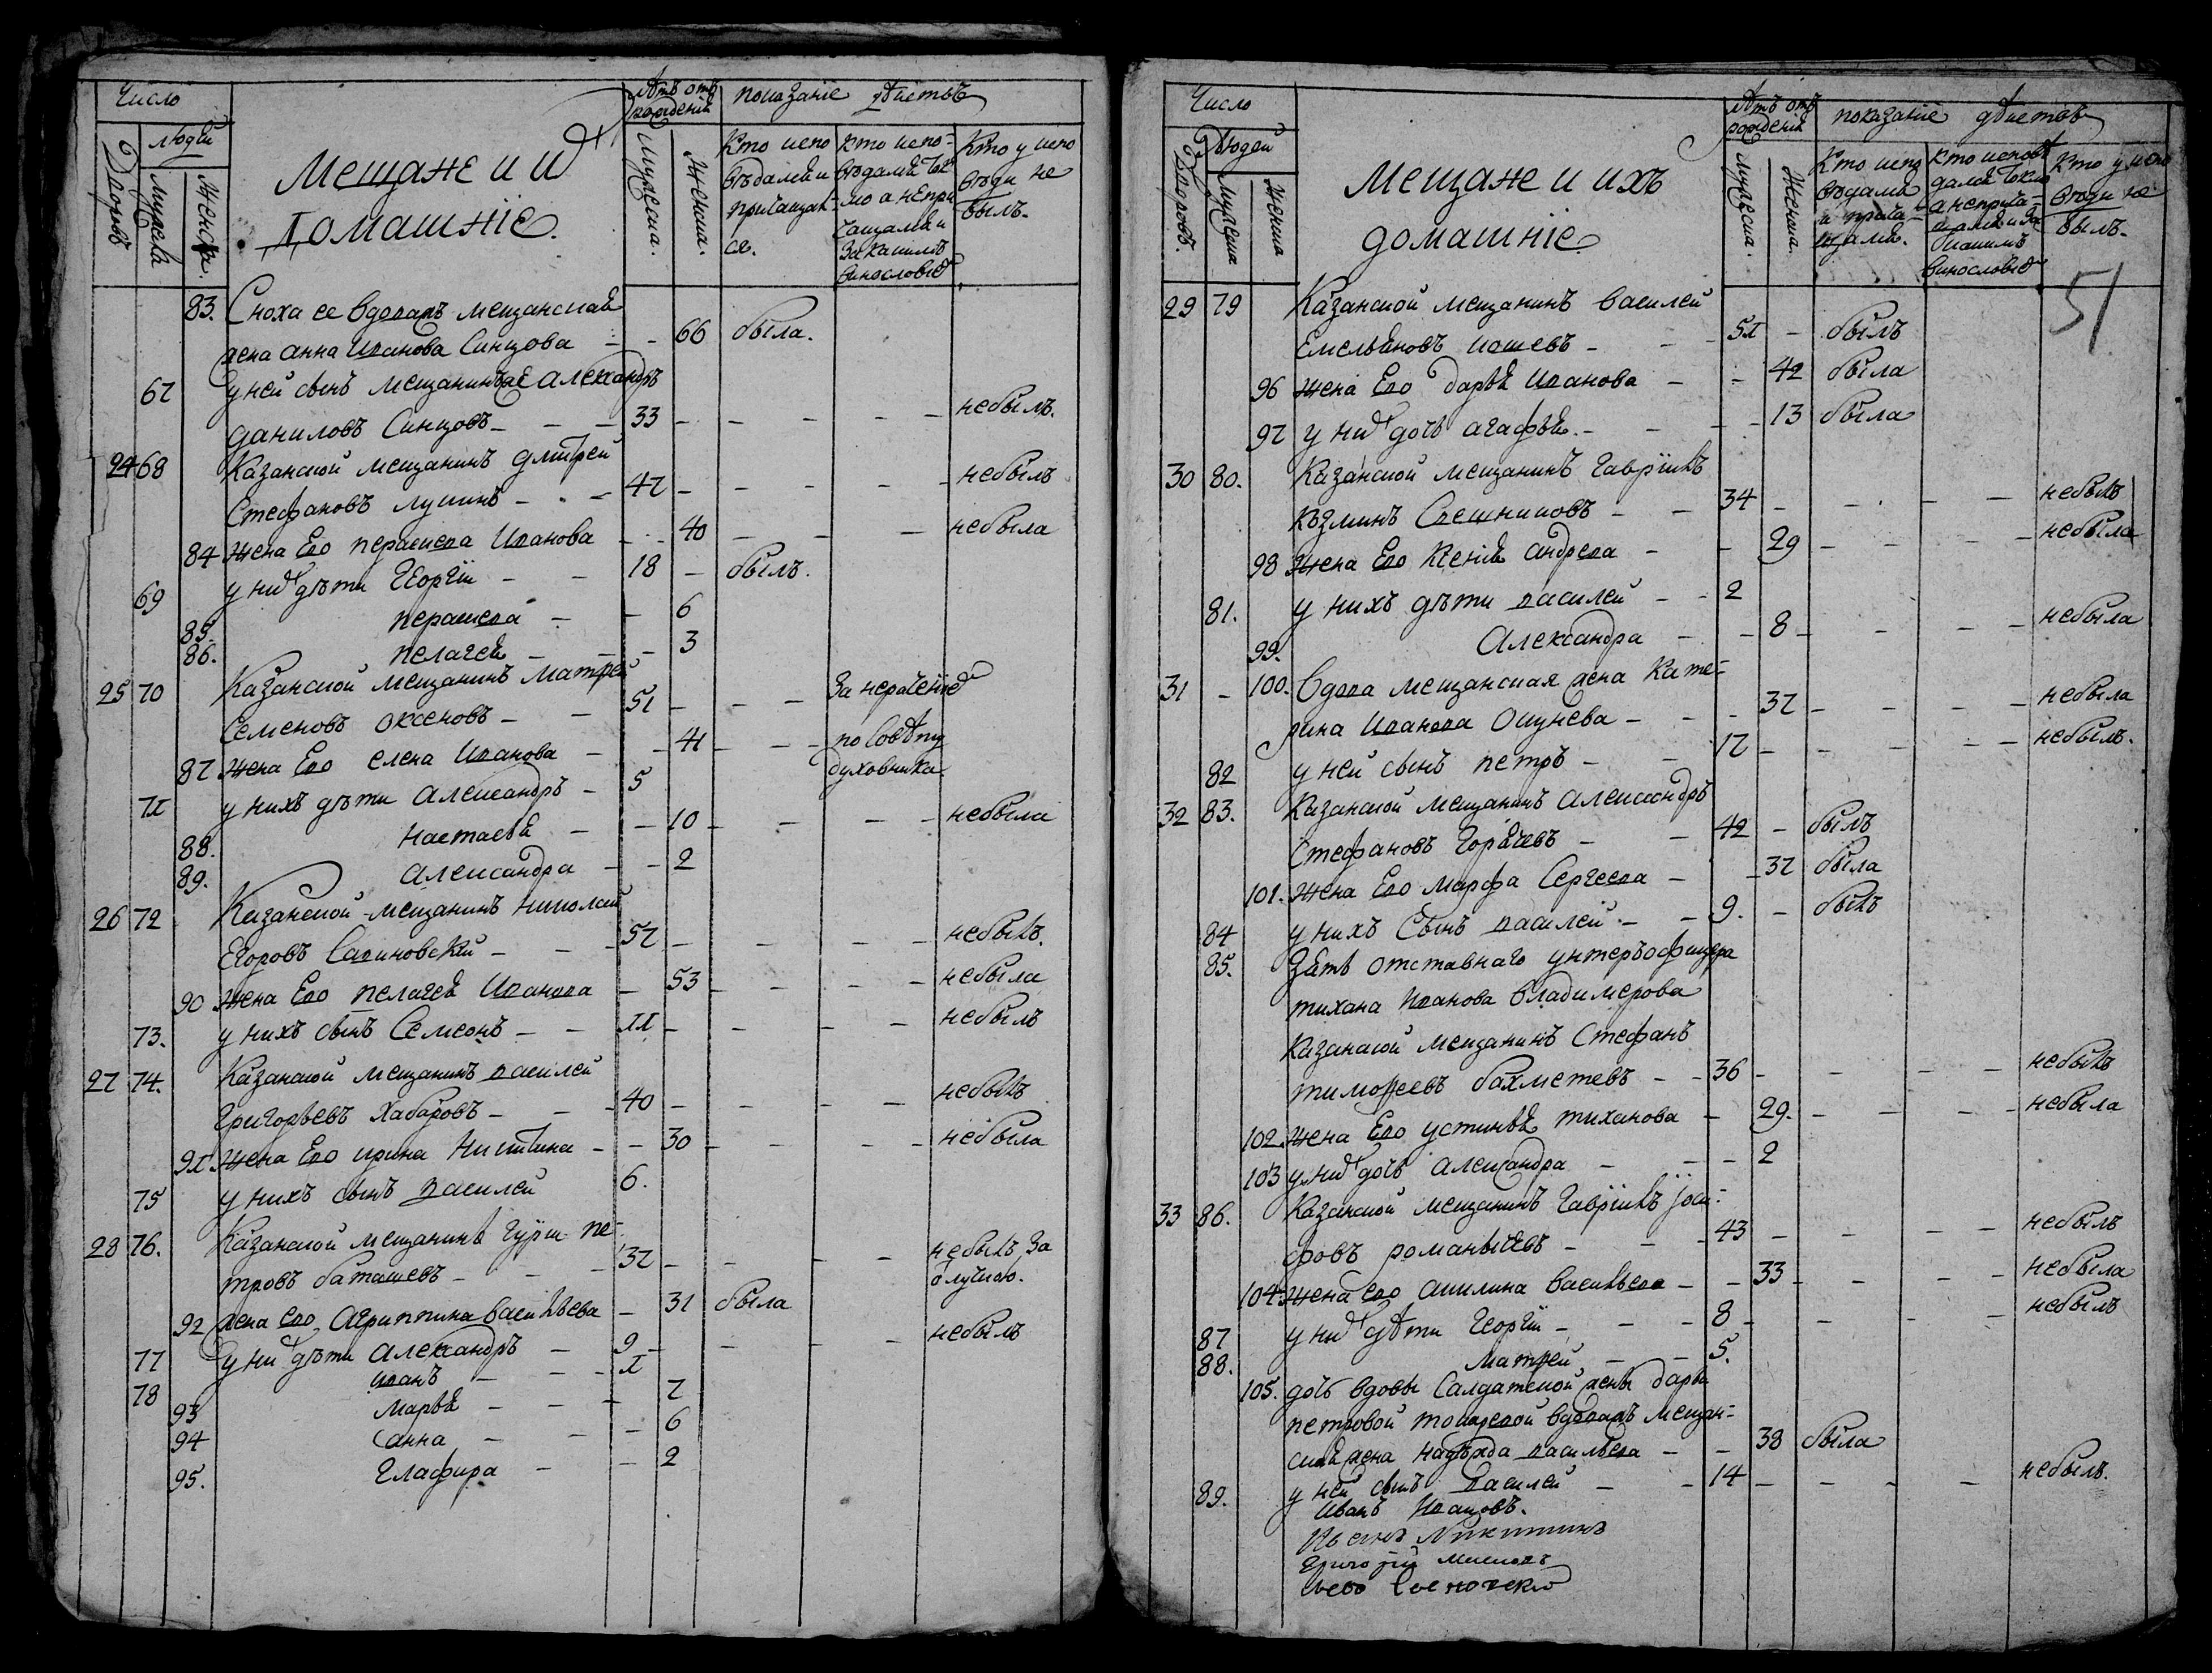 Число
людей
Дворовъ
Мужеска
Женска.
Мещане и их
домашніе.
Лѣтъ отъ рожденія
Мужеска.
Женска.
показаніе дѣйствъ
Кто испо
вѣдались и
причащал-
ся.
Кто испо-
вѣдался ток
мо а непри
чащался и
за какимъ
винословіе
Кто у испо
вѣди не
былъ.
83. Сноха ее вдовая мещанская
жена анна Иванова Синцова - - 66 была.
67 у ней сынъ мещанинъ же александръ
даниловъ Синцовъ - - - 33 - - - - небылъ.
24 68 Казанской мещанинъ дмитрей
Стефановъ лукинъ - - - 47 - - - - небылъ
84 жена Его парасковa Иванова - - 40 - - - небыла
69 у них дѣти Георгіи - - 18 - былъ.
85. параскева - - 6
86. пелагея - - 3
25 70 Казанской мещанинъ матфей
Семеновъ оксеновъ - - 51 - - - За нераченіе
87 жена Его елена Иванова - - 41 - - - по совѣту
духовника
71 у нихъ дѣти александръ - 5
88. настасья - - 10 - - - - небыла
89. александра - - 2
26 72 Казанской мещанинъ николай
Егоровъ Савиновскій - - - 57 - - - - небылъ.
90 жена Его пелагея Иванова - 53 - - - - небыла
73. у нихъ сынъ Семеонъ - - 11 - - - - небылъ
27 74. Казанской мещанинъ василей
Григорьевъ Хабаровъ - - - 40 - - - - небылъ
91. жена Его ирина Никитина - - 30 - - - - небыла
75 у нихъ сынъ василей 6.
28 76. Казанской мещанинъ гурiи пе-
тровъ баташевъ - - - 37 - - - небылъ, за
отлучкою.
92 жена его агриппина васильева - 31 была
77 у них дѣти александръ - 9 - - - - небылъ
78 иванъ - - - 1
93 марья - - - 7
94 анна - - - 6
95. глафира - - 2
Число
Людей
Дворовъ.
Мужеска
Женска
мещане и ихъ
домашніе
лѣтъ отъ рожденія
Мужеска.
Женска.
показаніе дѣйствъ
Кто испо
вѣдался
и прича-
щался.
Кто исповѣ
дался токмо
а неприча-
щался и за
какимъ
винословіе
Кто у испо
вѣди не
былъ.
51
29 79 Казанской мещанинъ василей
Емельяновъ ившевъ - - - 51 - былъ
96 жена Его дарья Иванова - - 42 была
97 у них дочь агафья - - - 13 была
30 80. Казанской мещанинъ гавріилъ
Кузминъ Свешниковъ - - 34 - - - - небылъ
98 жена Его Ксенія андреева - - 29 - - - - небыла
81. у нихъ дѣти василей - - 2
99. Александра - - 8 - - - - небыла
31 - 100. Вдова мещанская жена Кате-
рина Иванова Окунева - - - 37 - - - - небыла
82 у ней сынъ петръ - - 17 - - - - небылъ.
32 83. Казанской мещанинъ александръ
Стефановъ Горячевъ - - 42 - былъ
101. жена Его марфа Сергеева - - 37 была
84 у нихъ Сынъ василей - - 9. - былъ
85. Зять отставнаго унтеръофицера
тихана Иванова владимерова
Казанской мещанинъ Стефанъ
тимофеевъ бахметевъ - - 36 - - - - небылъ
102. жена Его устинья тиханова - 29. - - - - небыла
103 у них дочь александра - - - 2
33 86. Казанской мещанинъ гавріилъ іоси-
фовъ романычевъ - - - 43 - - - - небылъ
104. жена его акилина васильева - - 33 - - - - небыла
87 у них дѣти Георгіи - - - 8 - - - - небылъ
88. матфей - - 5.
105. дочь вдовы Салдатской жены дарьи
петровой токаревой вдовая мещан-
ская жена надежда васильева - - 38 была
89. у ней сынъ василей - - 14 - - - - небылъ.
Иванъ Ивановъ.
Никитинъ
Григорій